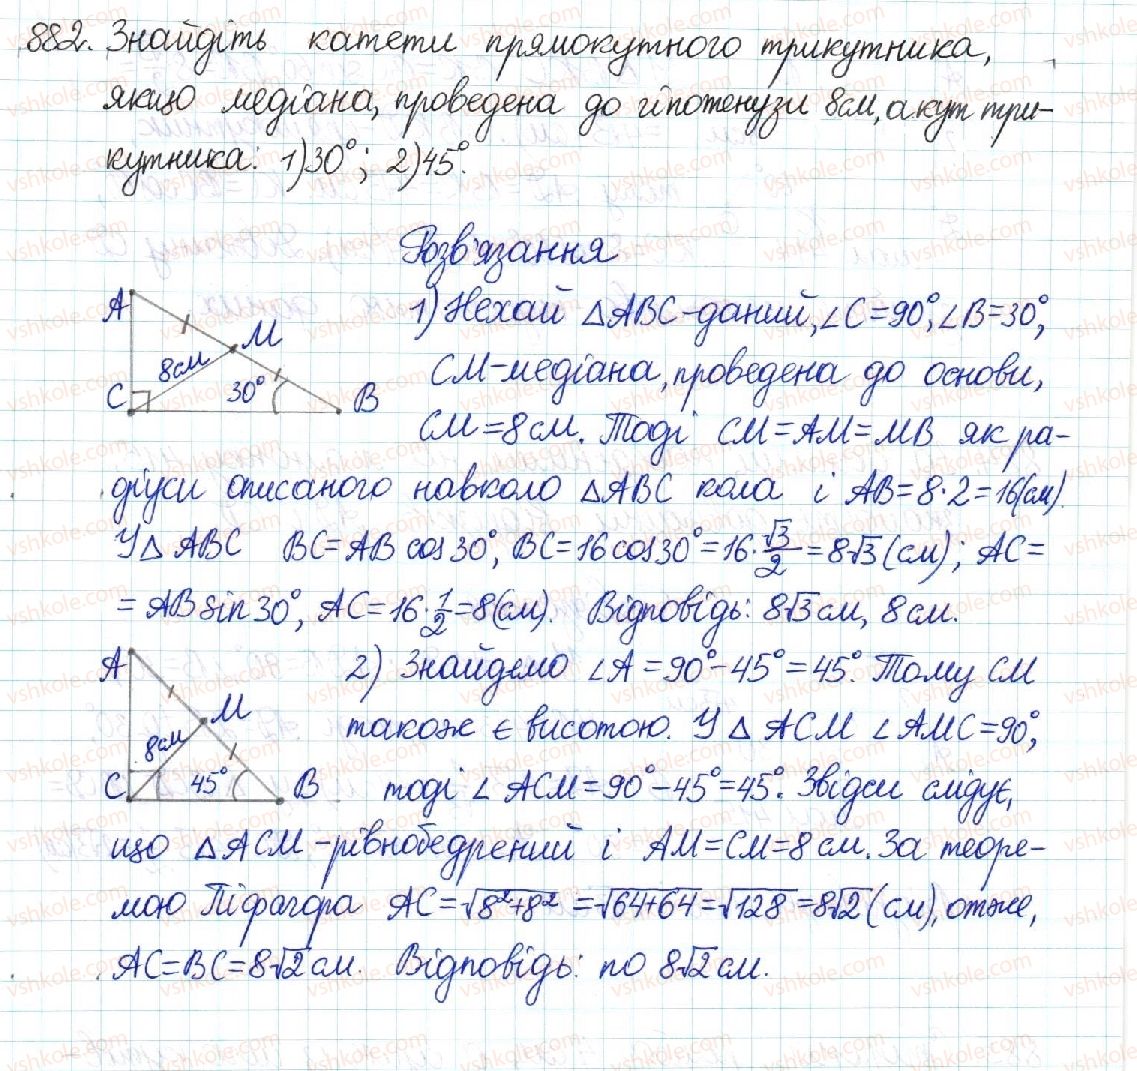 882. Знайдіть катети прямокутного трикутника,
якщо медіана, проведена до гіпотенузи 8см, а кут три-
кутника: 1)30°; 2)45°.
Розв'язання
A
M
8см
30°
C
B
1) Нехай △ABC-даний, ∠C=90°, ∠B=30°,
CM-медіана, проведена до основи,
CM=8см. Тоді CM=AM=MB як ра-
діуси описаного навколо △ABC кола і AB=8·2=16(см).
У△ABC BC=AB cos30°, BC=16cos30°=16·√3/2=8√3(см); AC=
=AB sin30°, AC=16·1/2=8(см). Відповідь: 8√3см, 8см.
A
M
8см
45°
C
B
2) Знайдемо ∠A=90°-45°=45°. Тому CM
також є висотою. У △ACM ∠AMC=90°,
тоді ∠ACM=90°-45°=45°. Звідси слідує,
що △ACM-рівнобедрений і AM=CM=8см. За теоре-
мою Піфагора AC=√8²+8²=√64+64=√128=8√2(см), отже,
AC=BC=8√2см. Відповідь: по 8√2см.
vshkole.com